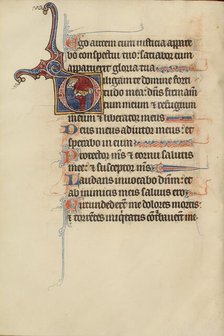 Ego autem cum iusticia appare
bo conspectui tuo: satiabor cum
apparuerit gloria tua
Diligam te domine forti
tudo mea: dns firmam
entum meum & refugium
meum & liberator meus
Deus meus adiutor meus: et
sperabo in eum
Protector ms & cornu salutis
mee: & susceptor ms
Laudans inuocabo dnm: et
ab inimicis meis saluus ero
Circumdederunt me dolores mortis:
& torrentes iniquitatis conturbauerunt me